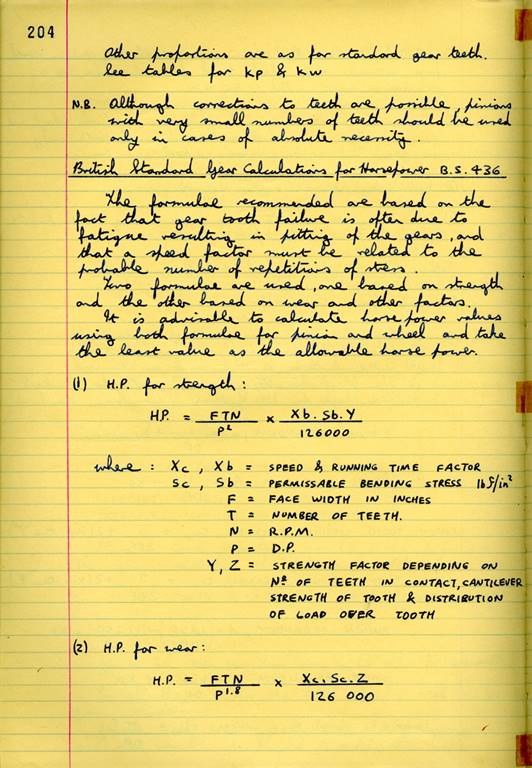 204
Other proportions are as for standard gear teeth.
See tables for KP & KW
N.B. Although corrections to teeth are possible, pinions
with very small numbers of teeth should be used
only in cases of absolute necessity.
British Standard Gear Calculations for Horsepower B.S. 436
The formulae recommended are based on the
fact that gear tooth failure is often due to
fatigue resulting in pitting of the gears, and
that a speed factor must be related to the
probable number of repetitions of stress.
Two formulae are used, one based on strength
and the other based on wear and other factors.
It is advisable to calculate horse power values
using both formulae for pinion and wheel and take
the least value as the allowable horse power.
(1) H.P. for strength :
H.P. = FTN / P² × Xb. Sb. Y / 126000
where : Xc , Xb = SPEED & RUNNING TIME FACTOR
Sc , Sb = PERMISSABLE BENDING STRESS lbf/in²
F = FACE WIDTH IN INCHES
T = NUMBER OF TEETH.
N = R.P.M.
P = D.P.
Y, Z = STRENGTH FACTOR DEPENDING ON
Nº OF TEETH IN CONTACT, CANTILEVER
STRENGTH OF TOOTH & DISTRIBUTION
OF LOAD OVER TOOTH
(2) H.P. for wear :
H.P. = FTN / P^1.8 × Xc. Sc. Z / 126 000